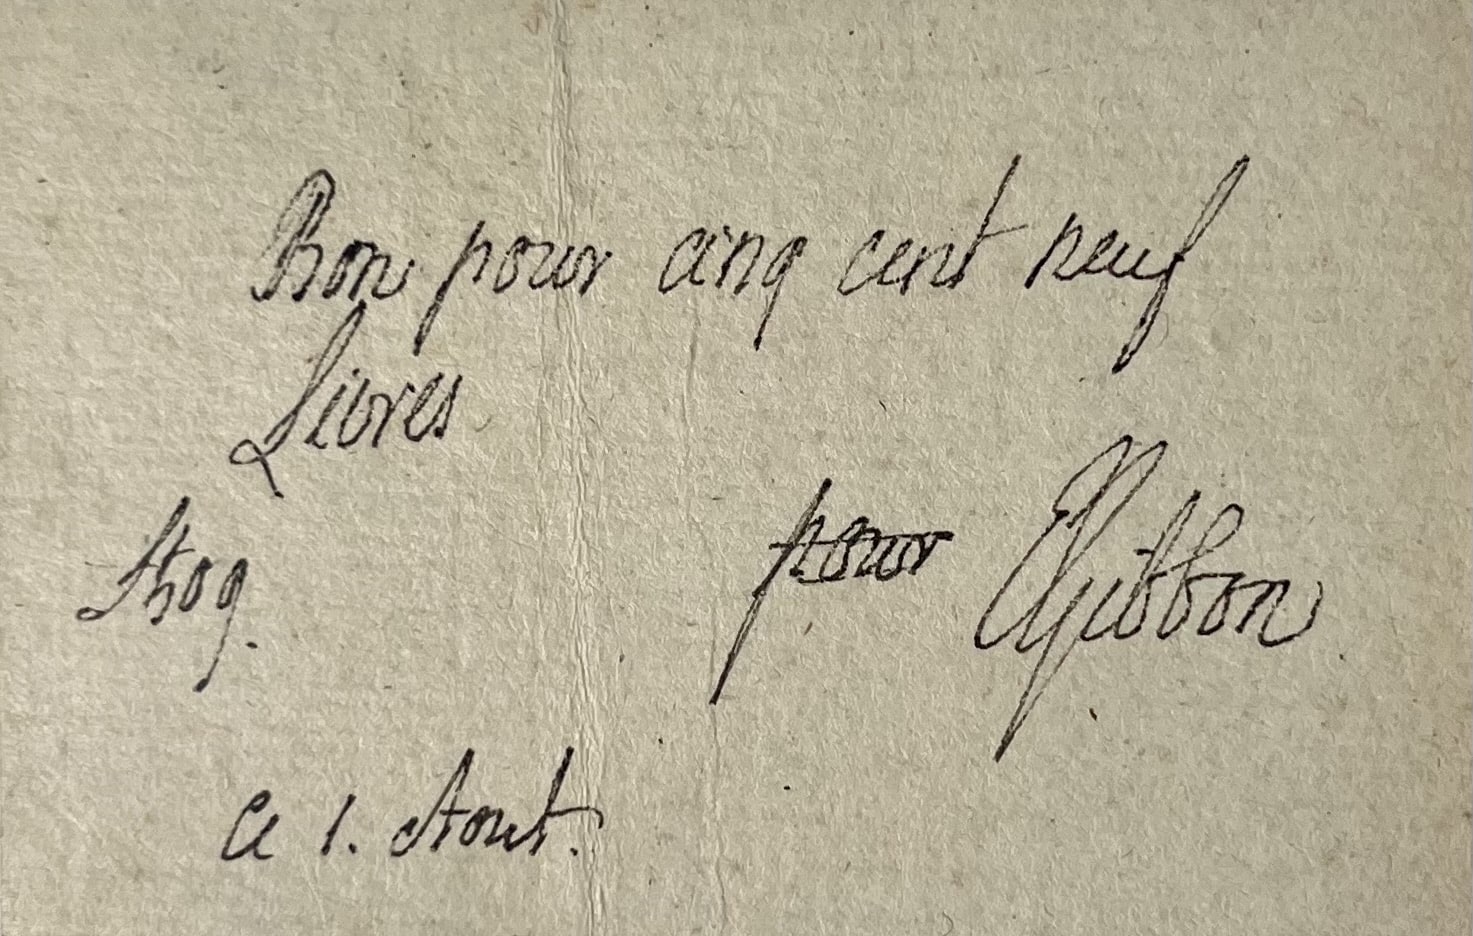 Bon pour cinq cent neuf
Livres
£509. pour EGibbon
ce 1. Aout.